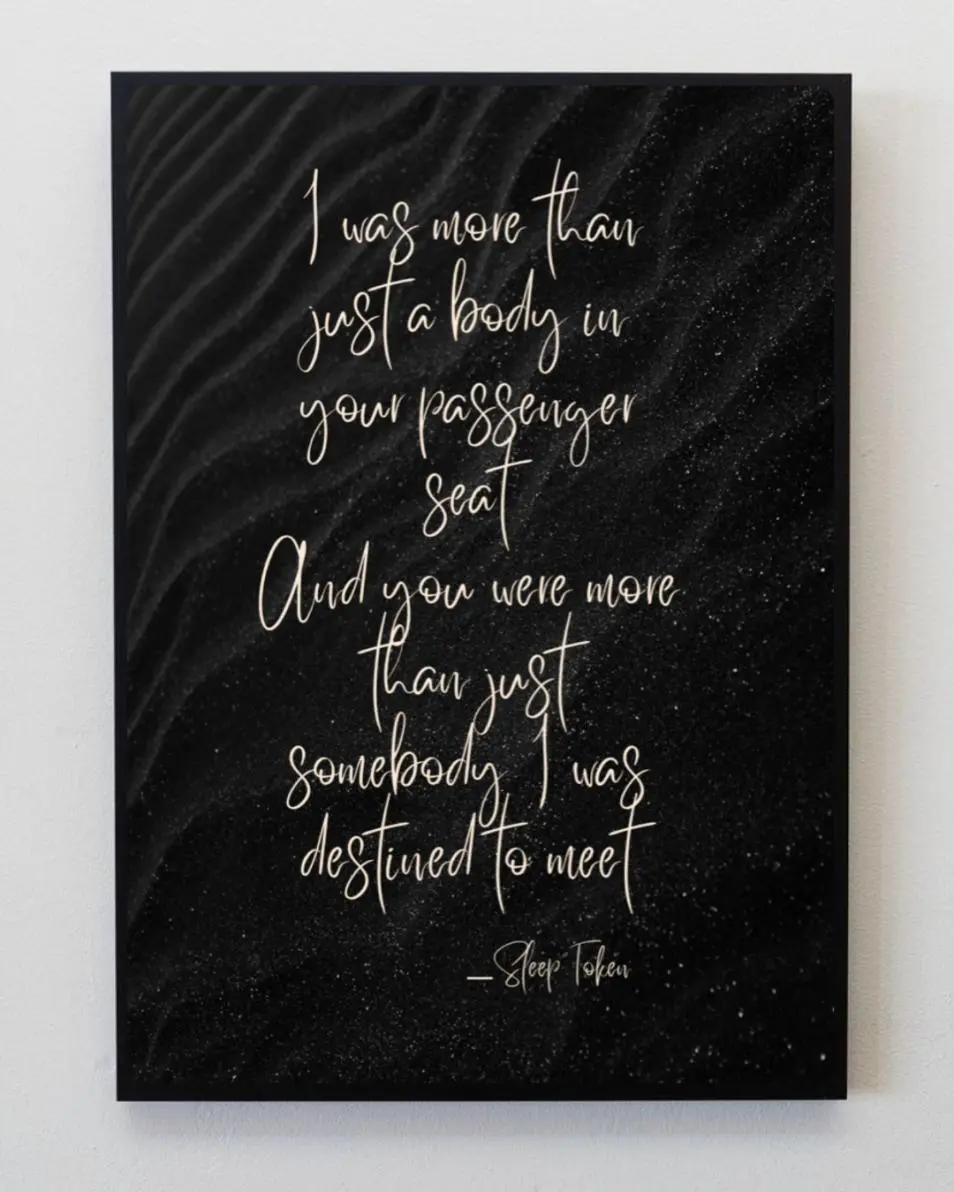 I was more than
just a body in
your passenger
seat
And you were more
than just
somebody I was
destined to meet
_Sleep Token